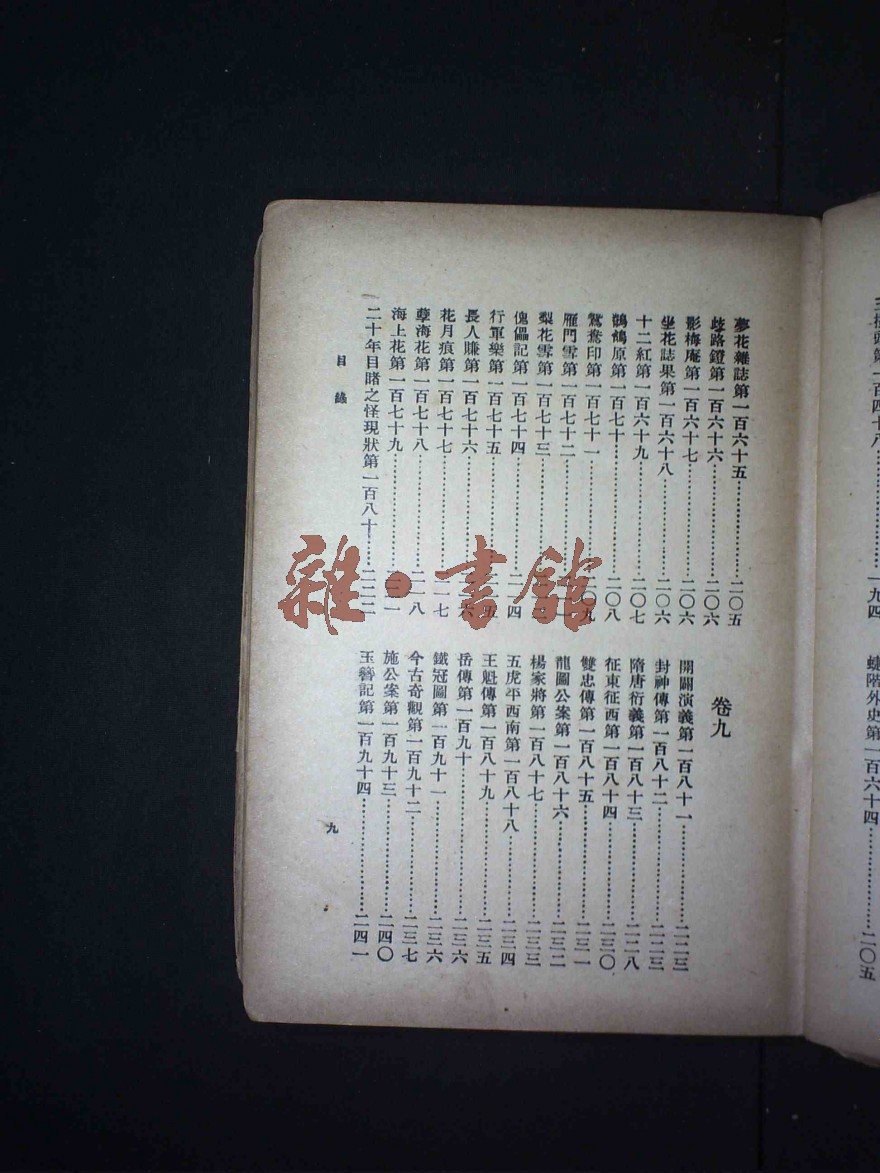 夢花雜誌第一百六十五……二〇五
歧路鐙第一百六十六……二〇六
影梅庵第一百六十七……二〇六
坐花誌果第一百六十八……二〇六
十二紅第一百六十九……二〇七
鶺鴒原第一百七十……二〇八
鴛鴦印第一百七十一……二〇九
雁門雪第一百七十二……
梨花雪第一百七十三……
傀儡記第一百七十四……二一四
行軍樂第一百七十五……
長人賺第一百七十六……
花月痕第一百七十七……二一七
孽海花第一百七十八……二一八
海上花第一百七十九……
二十年目睹之怪現狀第一百八十……二二二
卷九
開闢演義第一百八十一……二二三
封神傳第一百八十二……二二三
隋唐衍義第一百八十三……二二八
征東征西第一百八十四……二三〇
雙忠傳第一百八十五……二三一
龍圖公案第一百八十六……二三二
楊家將第一百八十七……二三三
五虎平西南第一百八十八……二三四
王魁傳第一百八十九……二三五
岳傳第一百九十……二三六
鐵冠圖第一百九十一……二三六
今古奇觀第一百九十二……二三七
施公案第一百九十三……二四〇
玉簪記第一百九十四……二四一
目錄
九
第一百四十八……一九四
蜨階外史第一百六十四……二〇五
雜·書館